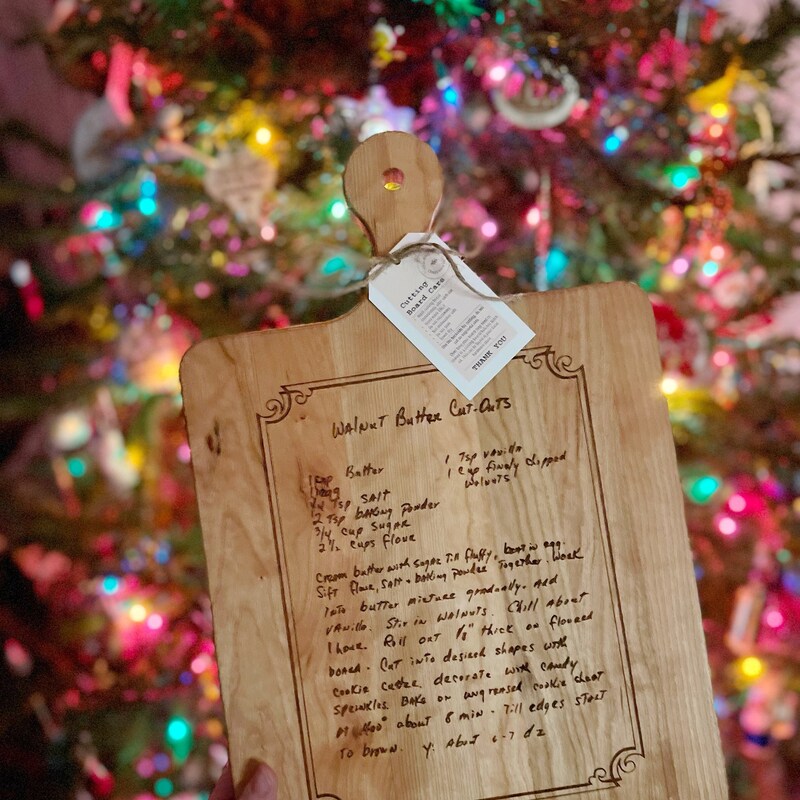 Cutting
Board Care
THANK YOU
WALNUT Butter Cut-Outs
1 cup Butter
1 egg
1/4 Tsp SALT
2 Tsp bAKING Powder
3/4 cup SUGAR
2 1/2 cups flour
1 Tsp VANilla
1 Cup finely chipped
WALNUTS
Cream butter with sugar Till fluffy, beat in egg.
Sift flour, SALT & baking powder Together. Work
INTO butter mixture gradually. Add
VANilla. Stir in WALNUTS. Chill About
1 hour. Roll out 1/8" thick on floured
board. Cut into desired shapes with
cookie cutter decorate with candy
sprinkles. BAKE on ungreased cookie sheet
400° about 8 min - Till edges START
TO brown. Y: About 6-7 dz